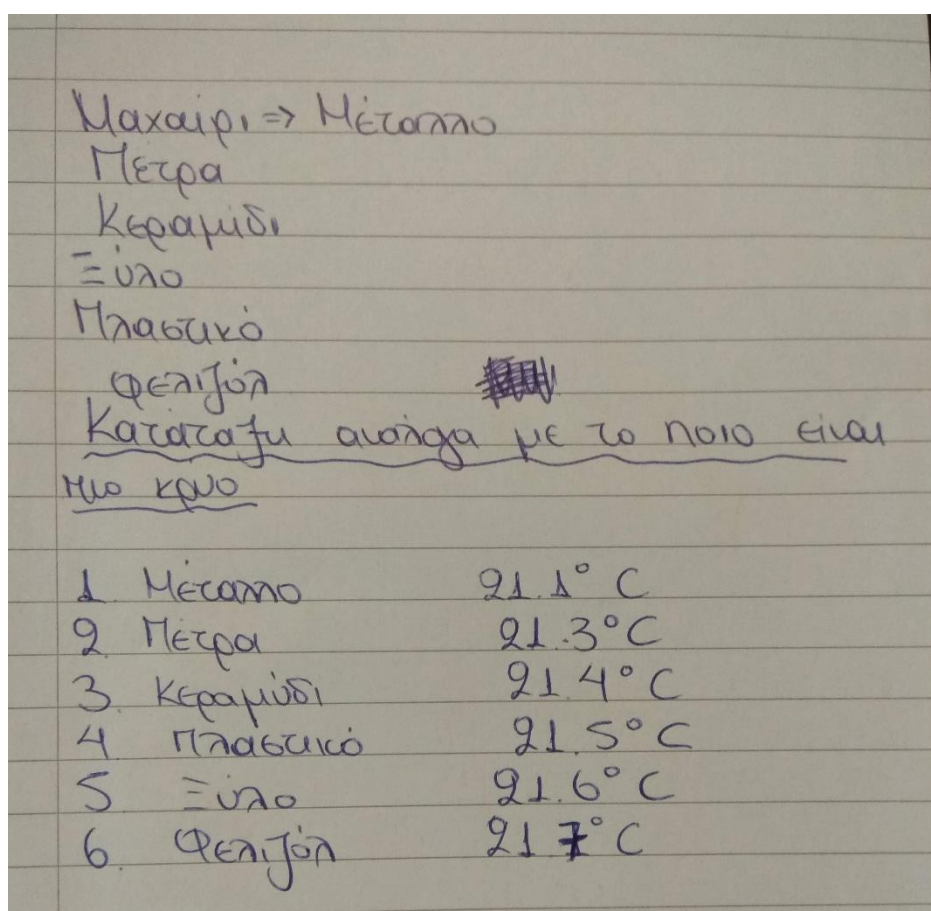 Μαχαίρι => Μέταλλο
Πέτρα
Κεραμίδι
Ξύλο
Πλαστικό
Φελιζόλ
Κατάταξη ανάλογα με το ποιο είναι
πιο κρύο
1 Μέταλλο 21.1° C
2 Πέτρα 21.3° C
3. Κεραμύδι 21.4° C
4 Πλαστικό 21.5° C
5 Ξύλο 21.6° C
6. Φελιζόλ 21.7° C